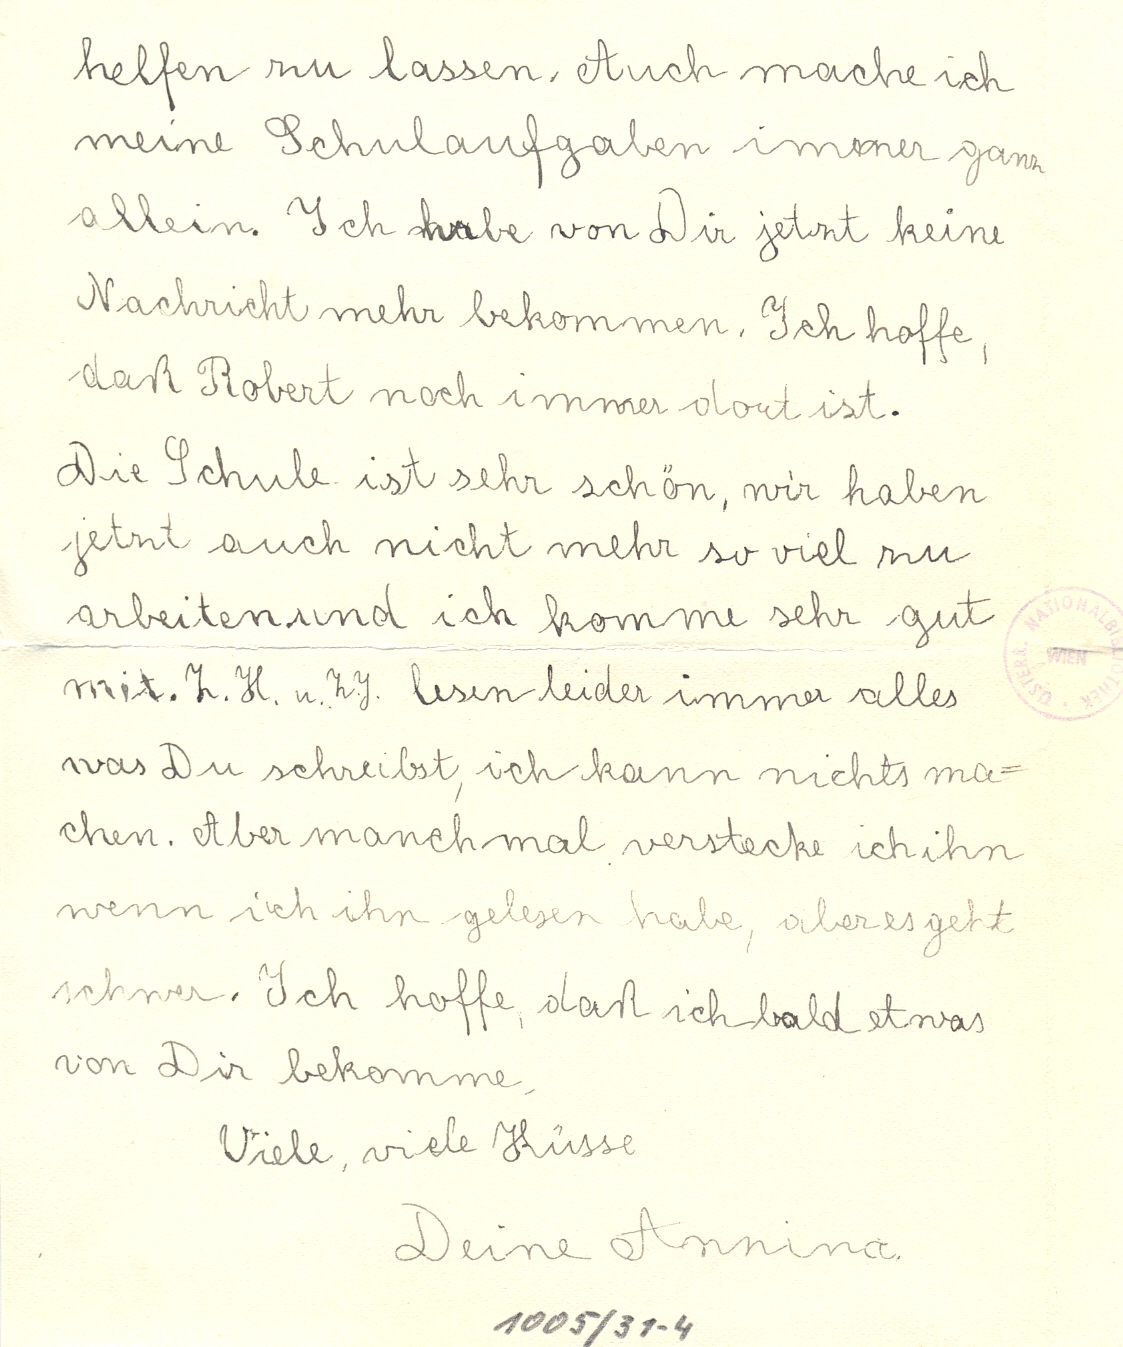 helfen zu lassen. Auch mache ich
meine Schulaufgaben immer ganz
allein. Ich habe von Dir jetzt keine
Nachricht mehr bekommen. Ich hoffe,
daß Robert noch immer dort ist.
Die Schule ist sehr schön, wir haben
jetzt auch nicht mehr so viel zu
arbeiten und ich komme sehr gut
mit. Z. H. u. Z. J. lesen leider immer alles
was Du schreibst, ich kann nichts ma=
chen. Aber manchmal verstecke ich ihn
wenn ich ihn gelesen habe, aber es geht
schwer. Ich hoffe, daß ich bald etwas
von Dir bekomme,
Viele, viele Küsse
Deine Annina.
1005/31-4
ÖSTERR. NATIONALBIBLIOTHEK
WIEN